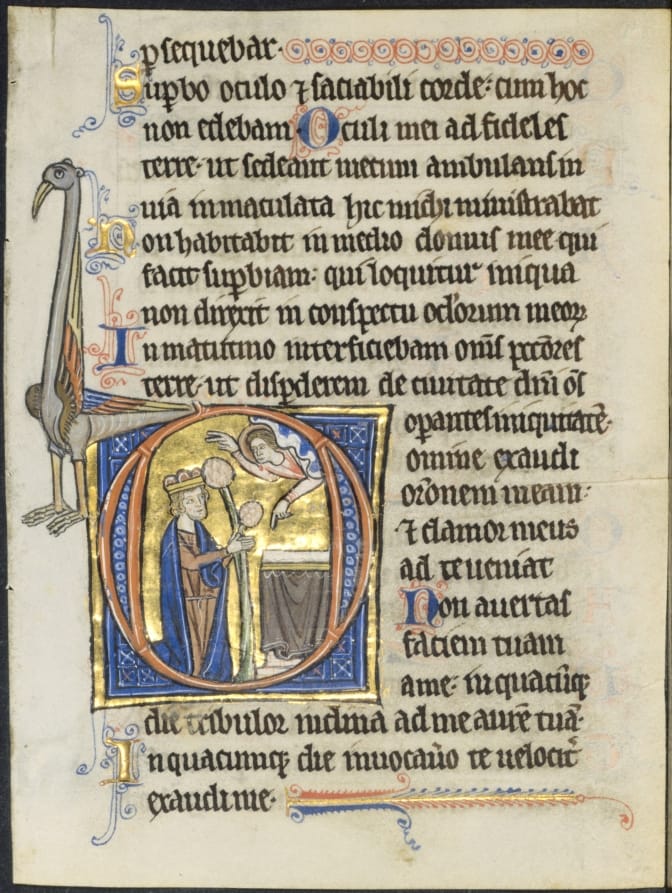 p̱sequebar·
Sup̱bo oculo ⁊ saciabili corde: cum hoc
non edebam Oculi mei ad fideles
terre· ut sedeant mecum ambulans in
uia inmaculata hic michi ministrabat
Non habitabit in medio domus mee qui
facit sup̱biam: qui loquitur iniqua
non direxit in conspectu oc̄lorum meoꝝ
In matutino interficiebam om̄s pctōres
terre· ut disp̱derem de ciuitate dn̄i os̄
op̱antes iniquitatē·
Domine exaudi
orōnem meam·
⁊ clamor meus
ad te ueniat
Non auertas
faciem tuam
a me· in quacūqꝫ
die tribulor inclina ad me aurē tuā·
In quacumqꝫ die inuocau̇o te uelocit̄
exaudi me·